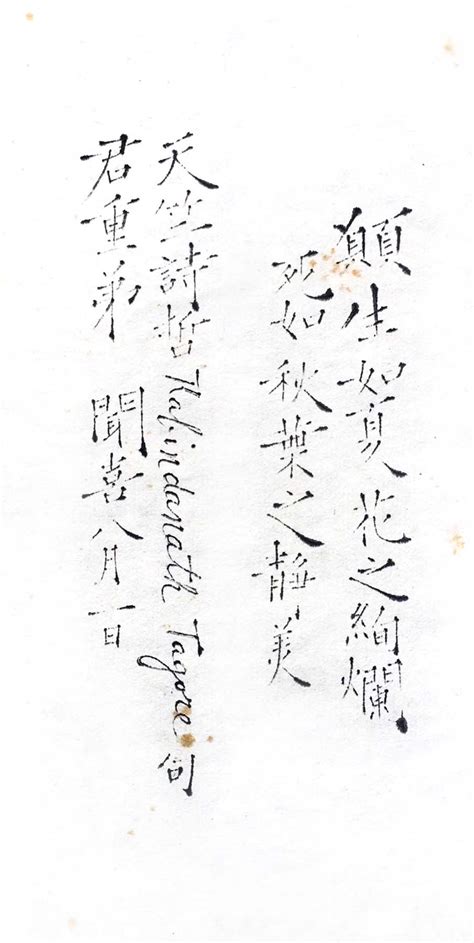 願生如夏花之絢爛
死如秋葉之靜美
天竺詩哲Rabindanath Tagore句
君重弟 聞喜八月一日